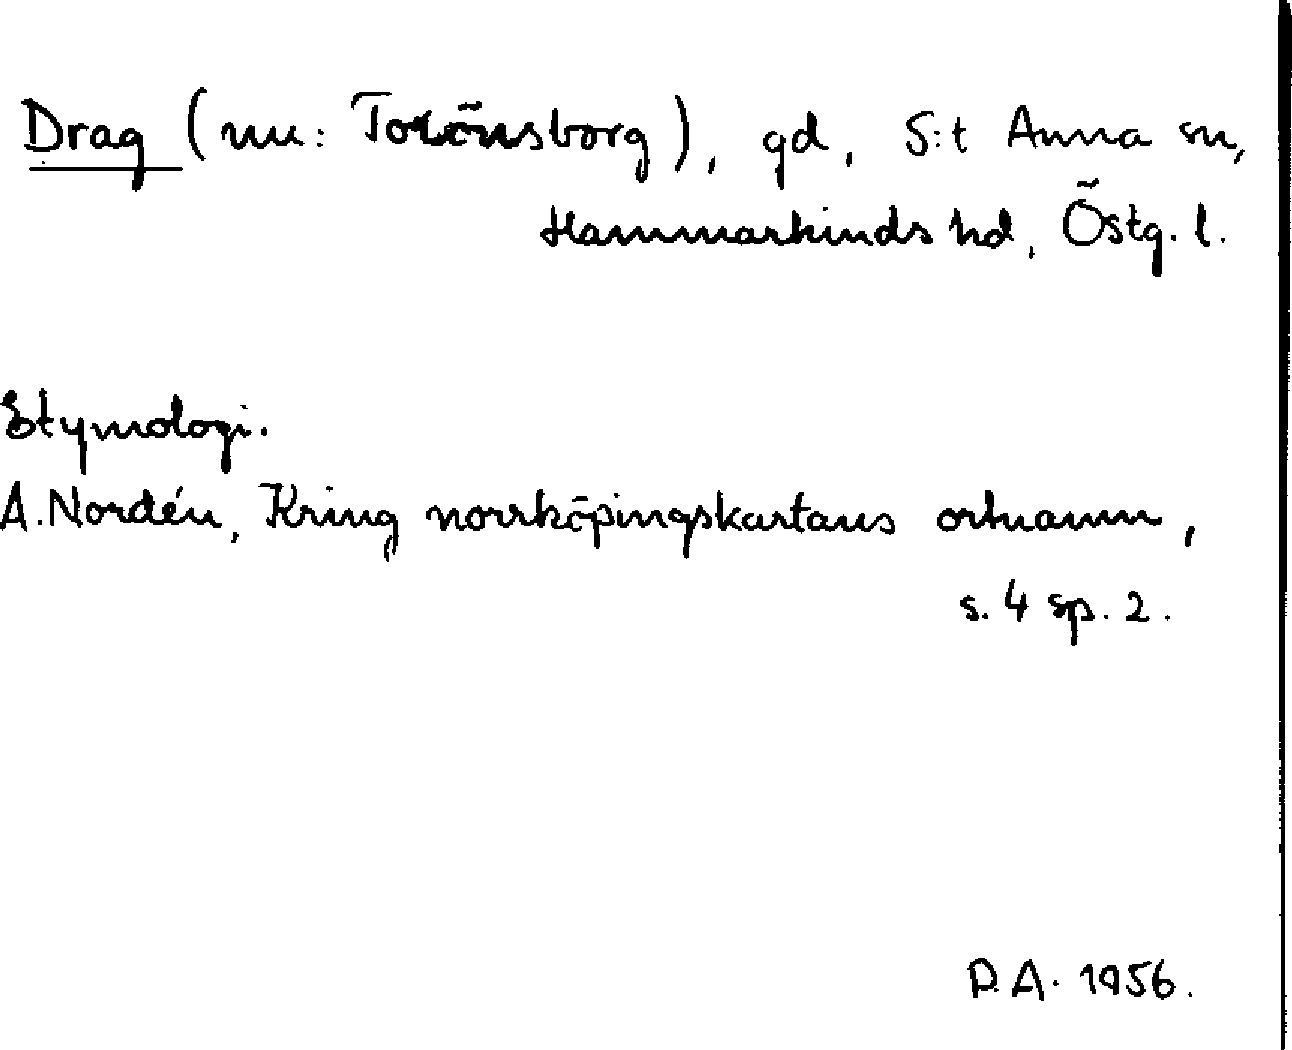 Drag (nu: Torönsborg), gd, S:t Anna sn,
Hammarkinds hd, Östg. l.
Etymologi.
A. Nordén, Kring norrköpingskartans ortnamn,
s. 4 sp. 2.
D.A. 1956.